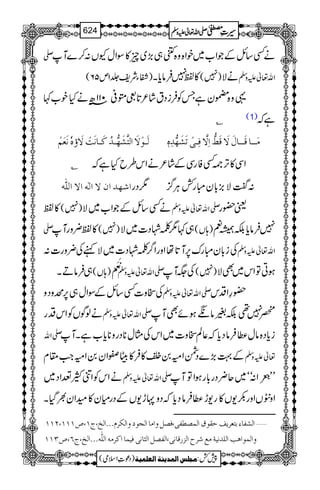 سیرتِ مصطفی صلی اللہ تعالیٰ علیہ وسلم
624
کسی نے سائل کے جواب میں خواہ وہ کتنی ہی بڑی چیز کا سوال کیوں نہ کرے آپ صلی
اللہ تعالیٰ علیہ وسلم نے لا (نہیں) کا لفظ نہیں فرمایا۔ (شفاء شریف جلد ا ص ۶۵)
یہی وہ مضمون ہے جس کو فرزدق شاعر تابعی متوفی ۱۱۰ھ نے کیا خوب کہا
ہے کہ (1)
مَا قَالَ لَا قَطُّ اِلَّا فِیْ تَشَھُّدِہٖ لَوْلَا التَّشَھُّدُ کَانَتْ لَاؤُہُ نَعَمْ
اسی کا ترجمہ کسی فارسی کے شاعر نے اس طرح کیا ہے کہ
نہ گفت لا بزبان مبارکش ہرگز مگر در اشھد ان لا الہ الا اللہ
یعنی حضور صلی اللہ تعالیٰ علیہ وسلم نے کسی سائل کے جواب میں لا (نہیں) کا لفظ
نہیں فرمایا بلکہ ہمیشہ نعم (ہاں) ہی کہا مگر کلمہ شہادت میں لا (نہیں) کا لفظ ضرور آپ صلی
اللہ تعالیٰ علیہ وسلم کی زبان مبارک پر آتا تھا اور اگر کلمہ شہادت میں لا کہنے کی ضرورت نہ
ہوتی تو اس میں بھی لا (نہیں) کی جگہ آپ صلی اللہ تعالیٰ علیہ وسلم نَعَمْ (ہاں) ہی فرماتے۔
حضور اقدس صلی اللہ تعالیٰ علیہ وسلم کی سخاوت کسی سائل کے سوال ہی پر محدود و
منحصر نہیں تھی بلکہ بغیر مانگے ہوئے بھی آپ صلی اللہ تعالیٰ علیہ وسلم نے لوگوں کو اس قدر
زیادہ مال عطا فرما دیا کہ عالم سخاوت میں اس کی مثال نادر و نایاب ہے۔ آپ صلی اللہ
تعالیٰ علیہ وسلم کے بہت بڑے دشمن امیہ بن خلف کافر کا بیٹا صفوان بن امیہ جب مقام
’’جعرانہ‘‘ میں حاضر دربار ہوا تو آپ صلی اللہ تعالیٰ علیہ وسلم نے اس کو اتنی کثیر تعداد میں
اونٹوں اور بکریوں کا ریوڑ عطا فرما دیا کہ دو پہاڑیوں کے درمیان کا میدان بھر گیا۔ اس
الشفاء بتعریف حقوق المصطفٰی، فصل واما الجود والکرم...الخ، ج۱، ص۱۱۱، ۱۱۲
والمواھب اللدنیة مع شرح الزرقانی، الفصل الثانی فیما اکرمہ اللہ...الخ، ج۶، ص۱۱۳
پیش کش: مجلس المدینة العلمیة (دعوتِ اسلامی)